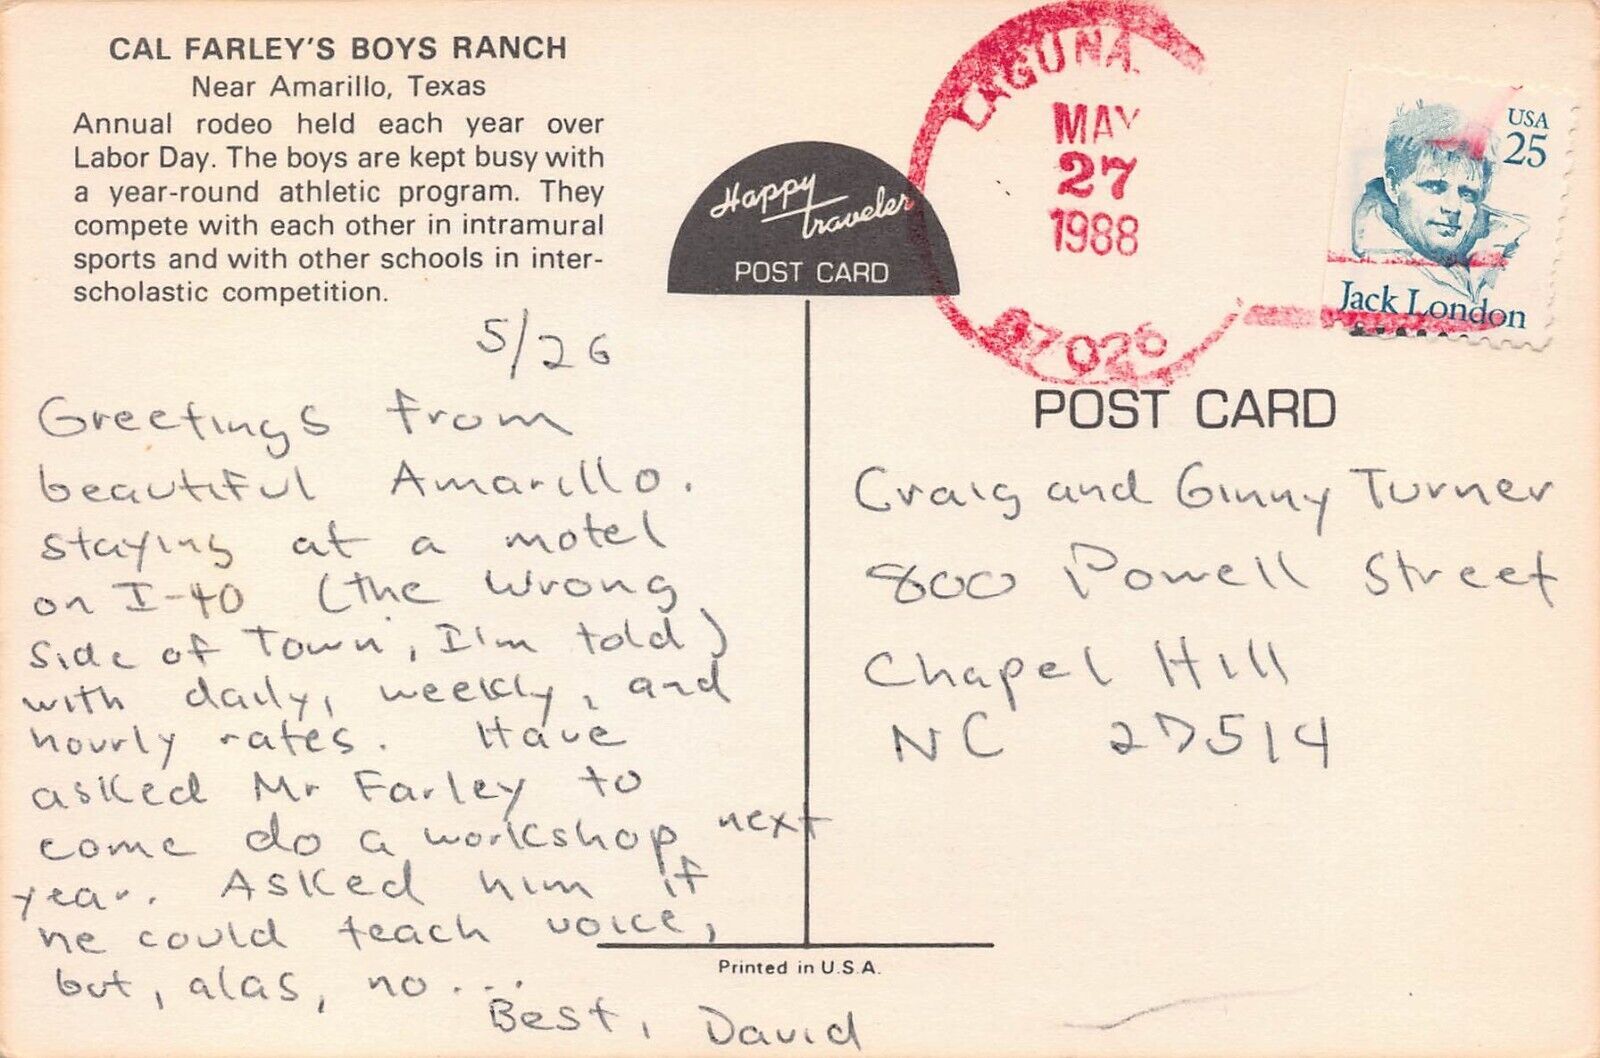 CAL FARLEY'S BOYS RANCH
Near Amarillo, Texas
Annual rodeo held each year over
Labor Day. The boys are kept busy with
a year-round athletic program. They
compete with each other in intramural
sports and with other schools in inter-
scholastic competition.
5/26
Greetings from
beautiful Amarillo.
Staying at a motel
on I-40 (the wrong
side of town, I'm told)
with daily, weekly, and
hourly rates. Have
asked Mr Farley to
come do a workshop next
year. Asked him if
he could teach voice,
but, alas, no...
Best, David
Happy
Traveler
POST CARD
LAGUNA
MAY
27
1988
87026
USA
25
Jack London
POST CARD
Craig and Ginny Turner
800 Powell Street
Chapel Hill
NC 27514
Printed in U.S.A.